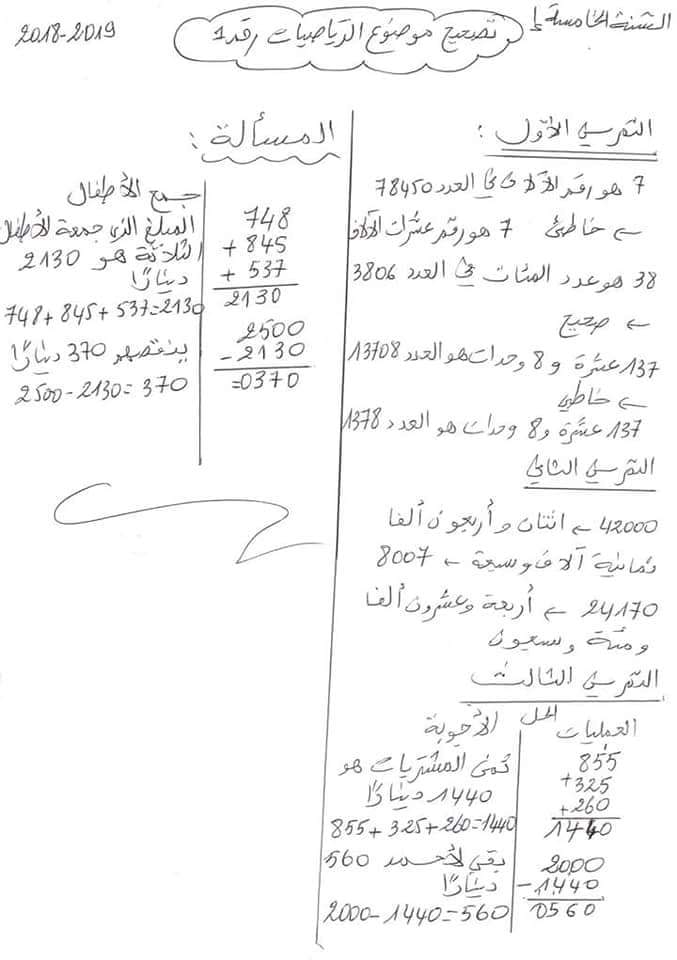 السنة الخامسة إ
تصحيح موضوع الرياضيات رقم 1
2018-2019
التمرين الأول :
7 هو رقم الآلاف في العدد 78450
← خاطئ 7 هو رقم عشرات الآلاف
38 هو عدد المئات في العدد 3806
← صحيح
137 عشرة و 8 وحدات هو العدد 13708
← خاطئ
137 عشرة و 8 وحدات هو العدد 1378
التمرين الثاني
42000 ← اثنان وأربعون ألفا
ثمانية آلاف وسبعة ← 8007
24170 ← أربعة وعشرون ألفا
ومئة وسبعون
التمرين الثالث
الحل
العمليات
855
+ 325
+ 260
1440
2000
- 1440
0560
الأجوبة
ثمن المشتريات هو
1440 دينارًا
855 + 325 + 260 = 1440
بقي لأحمد 560
دينارًا
2000 - 1440 = 560
المسألة :
748
+ 845
+ 537
2130
2500
- 2130
=0370
جمع الأطفال
المبلغ الذي جمعه الأطفال
الثلاثة هو 2130
دينارًا
748 + 845 + 537 = 2130
ينقصهم 370 دينارًا
2500 - 2130 = 370